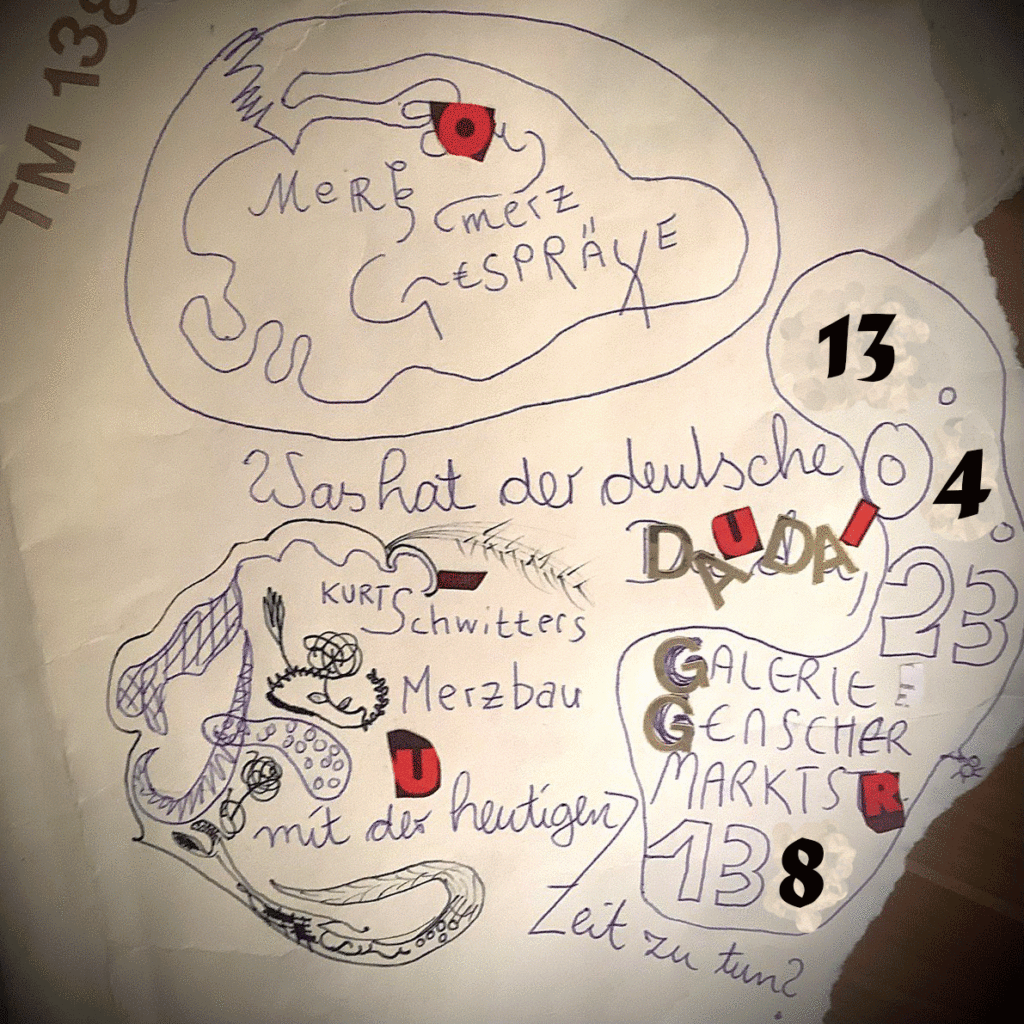 TM 138
MERZ
merz
GESPRÄXE
13
Was hat der deutsche
4
DADA,
U I
23
KURT
Schwitters
Merzbau
GALERIE
GENSCHER
MARKTSTR
U
mit der heutigen
138
Zeit zu tun?